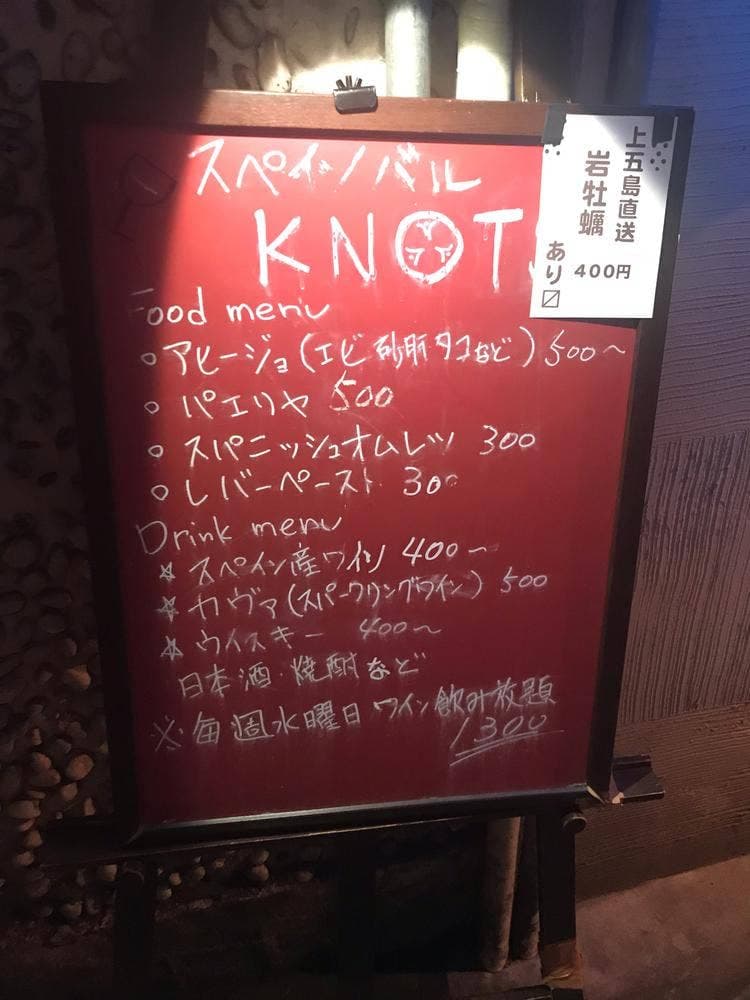 スペインバル
KNOTS
Food menu
○アヒージョ(エビ 砂肝 タコなど) 500〜
○パエリヤ 500
○スパニッシュオムレツ 300
○レバーペースト 300
Drink menu
☆スペイン産ワイン 400〜
☆カヴァ(スパークリングワイン) 500
☆ウイスキー 400〜
日本酒・焼酎など
※毎週水曜日 ワイン飲み放題
1300
上五島直送
岩牡蠣
400円
あり〼